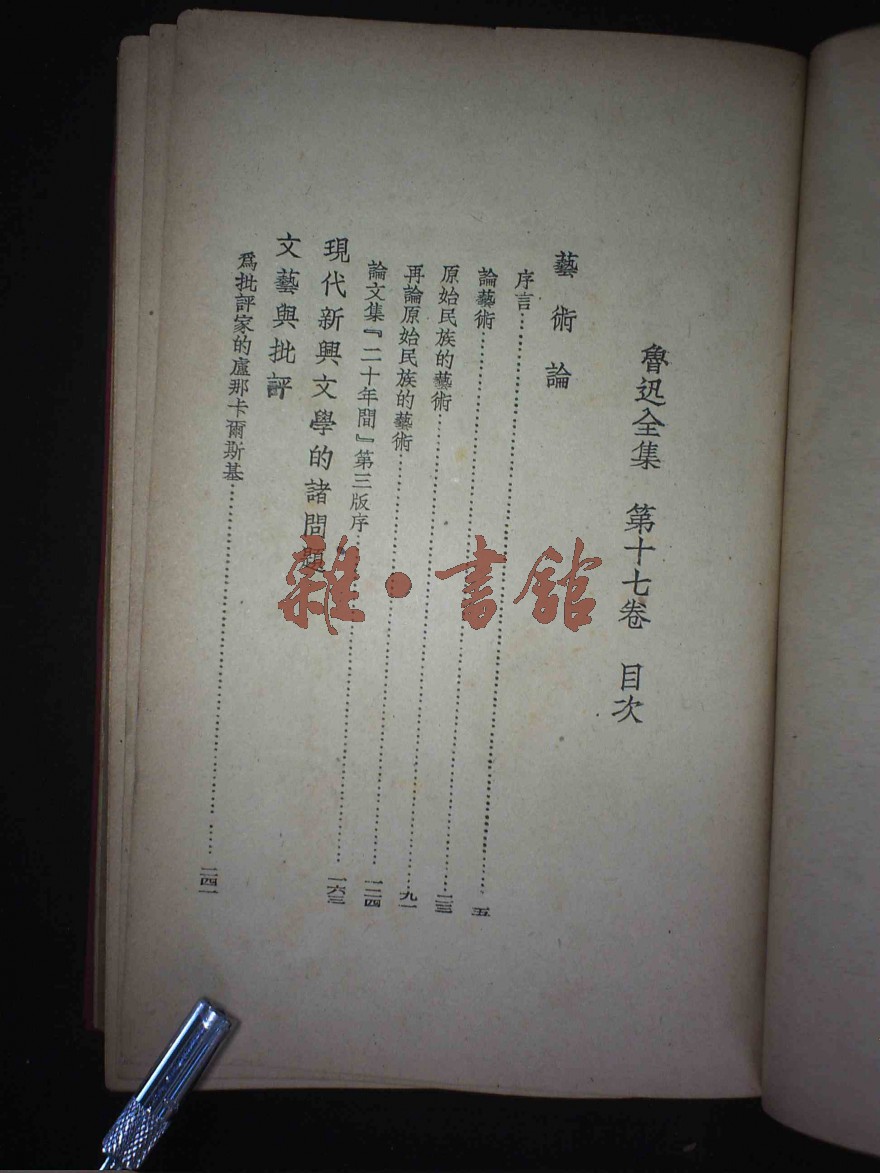 魯迅全集　第十七卷　目次
藝術論
序言……五
論藝術……二三
原始民族的藝術……九一
再論原始民族的藝術……一二四
論文集『二十年間』第三版序……一六三
現代新興文學的諸問題
文藝與批評
爲批評家的盧那卡爾斯基……二四一
雜·書館